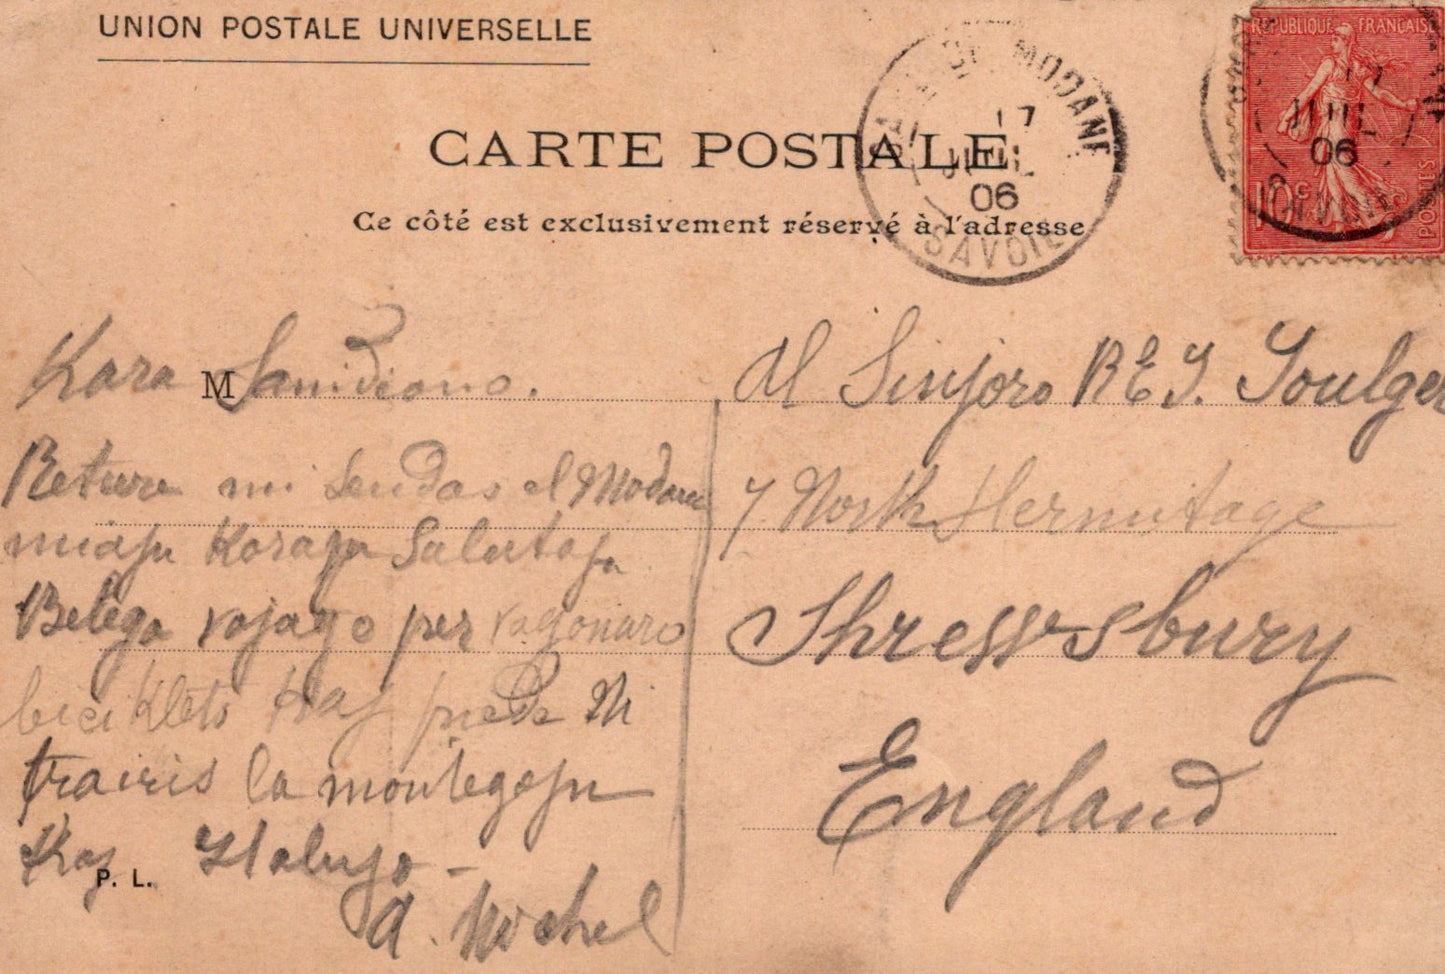 UNION POSTALE UNIVERSELLE
CARTE POSTALE
Ce côté est exclusivement réservé à l'adresse
MODANE
17
JUIL
06
SAVOIE
REPUBLIQUE FRANÇAISE
17
JUIL
06
10 c
POSTES
Kara M Samideano.
Returne mi sendas el Modane
miajn Korajn Salutojn
Belega vojago per vagonaro
bicikleto Kaj piede Ni
trairis la montegojn
Kaj Italujo -
A. Michel
P. L.
Al Sinjoro R E Y. Toulger
7 North Hermitage
Shrewsbury
England